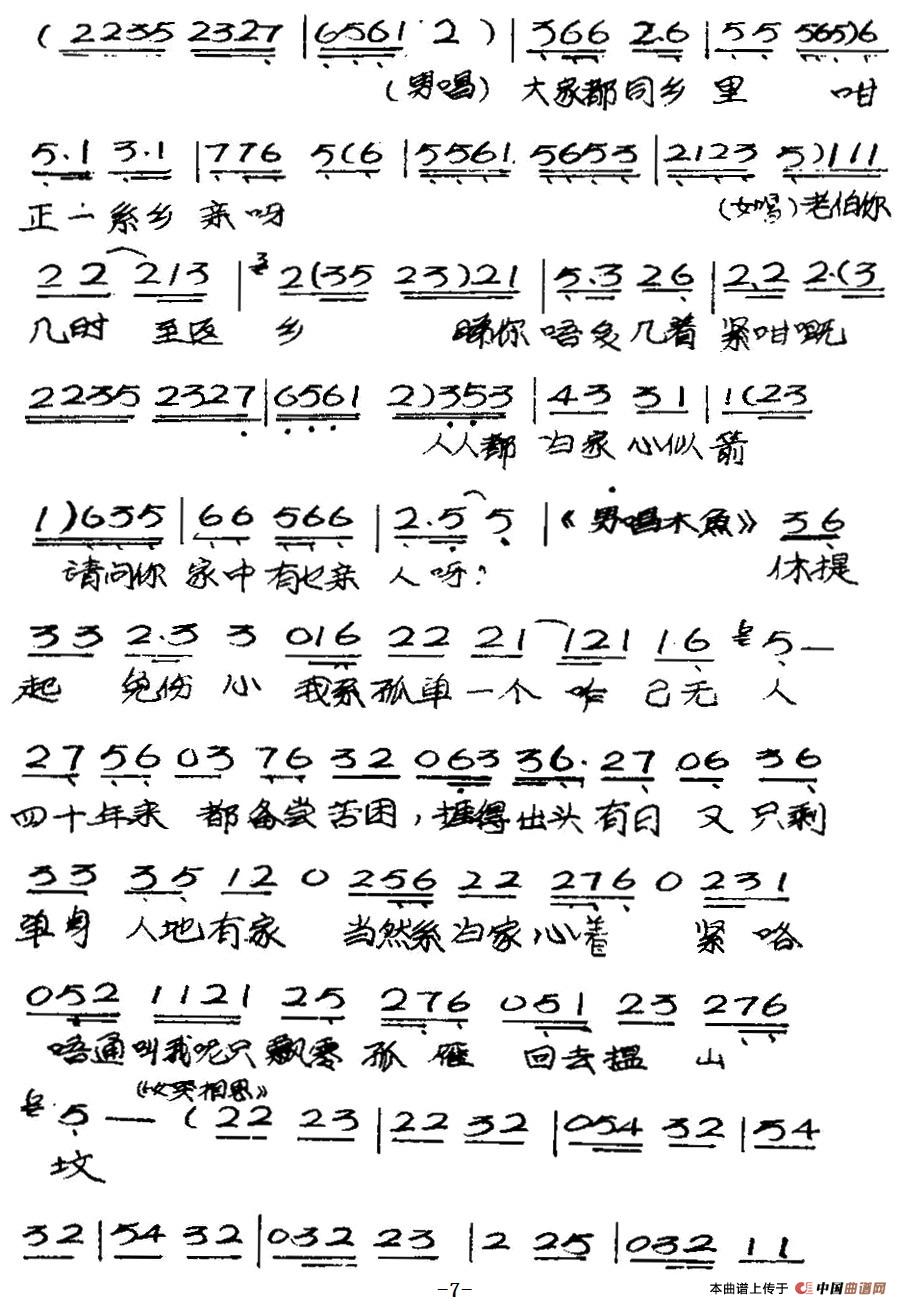 ( 2235 2327 | 6561 2 ) | 366 2.6 | 55 565)6
(男唱) 大家都同乡 里 咁
5.1 3.1 | 776 5(6 | 5561 5653 | 2123 5)111
正一系乡 亲呀 (女唱) 老伯你
22 213 | 2(35 23)21 | 5.3 26 | 2.2 2.(3
几时 至返 乡 睇你唔多几着 紧咁嘅
2235 2327 | 6561 2)353 | 43 31 | 1(23
人人都 归家 心似 箭
1)635 | 66 566 | 2.5 5 | 《男唱木魚》 36
请问你 家中有乜亲 人呀? 休提
33 2.3 3 016 22 21 121 1.6 5—
起 免伤 心 我系孤单一个 咋 已无 人
27 56 03 76 32 063 36. 27 06 36
四十年来 都备尝苦困,捱得出头有日 又只剩
33 35 12 0 256 22 276 0 231
单身 人地有家 当然系归家心着 紧咯
052 1121 25 276 051 23 276
唔通叫我呢只飘零孤 雁 回去揾 山
《女哭相思》
5 — ( 22 23 | 22 32 | 054 32 | 54
坟
32 | 54 32 | 032 23 | 2 25 | 032 11
-7-
本曲谱上传于 中国曲谱网